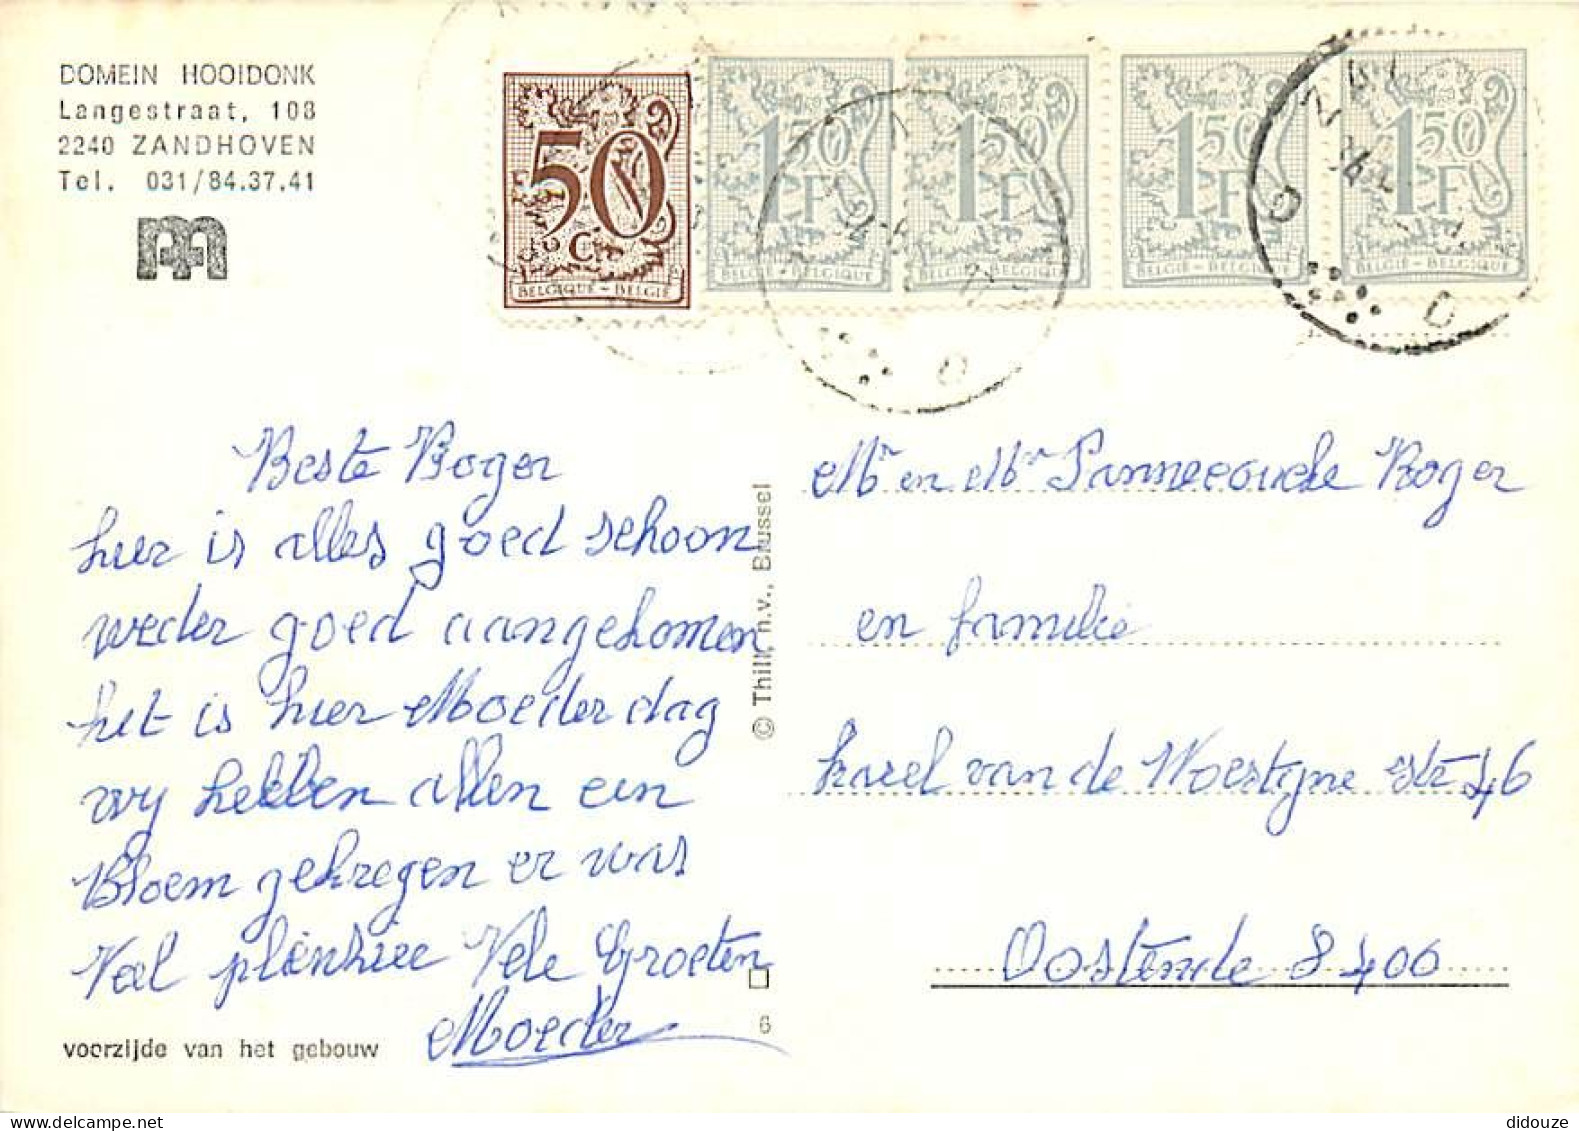 DOMEIN HOOIDONK
Langestraat, 108
2240 ZANDHOVEN
Tel. 031/84.37.41
50 Cr
BELGIQUE - BELGIË
1,50 F
BELGIË - BELGIQUE
1,50 F
BELGIË - BELGIQUE
1,50 F
BELGIË - BELGIQUE
1,50 F
BELGIË - BELGIQUE
Beste Roger
hier is alles goed schoon
weder goed aangekomen
het is hier Moederdag
wij hebben allen een
Bloem gekregen er was
Veel plänkiee Vele Groeten
Moeder
voorzijde van het gebouw
© Thill, n.v., Brussel
6
Mr en Mvr Panneeoucke Roger
en familie
karel van de Woestyne str 46
Oostende 8400
didouze